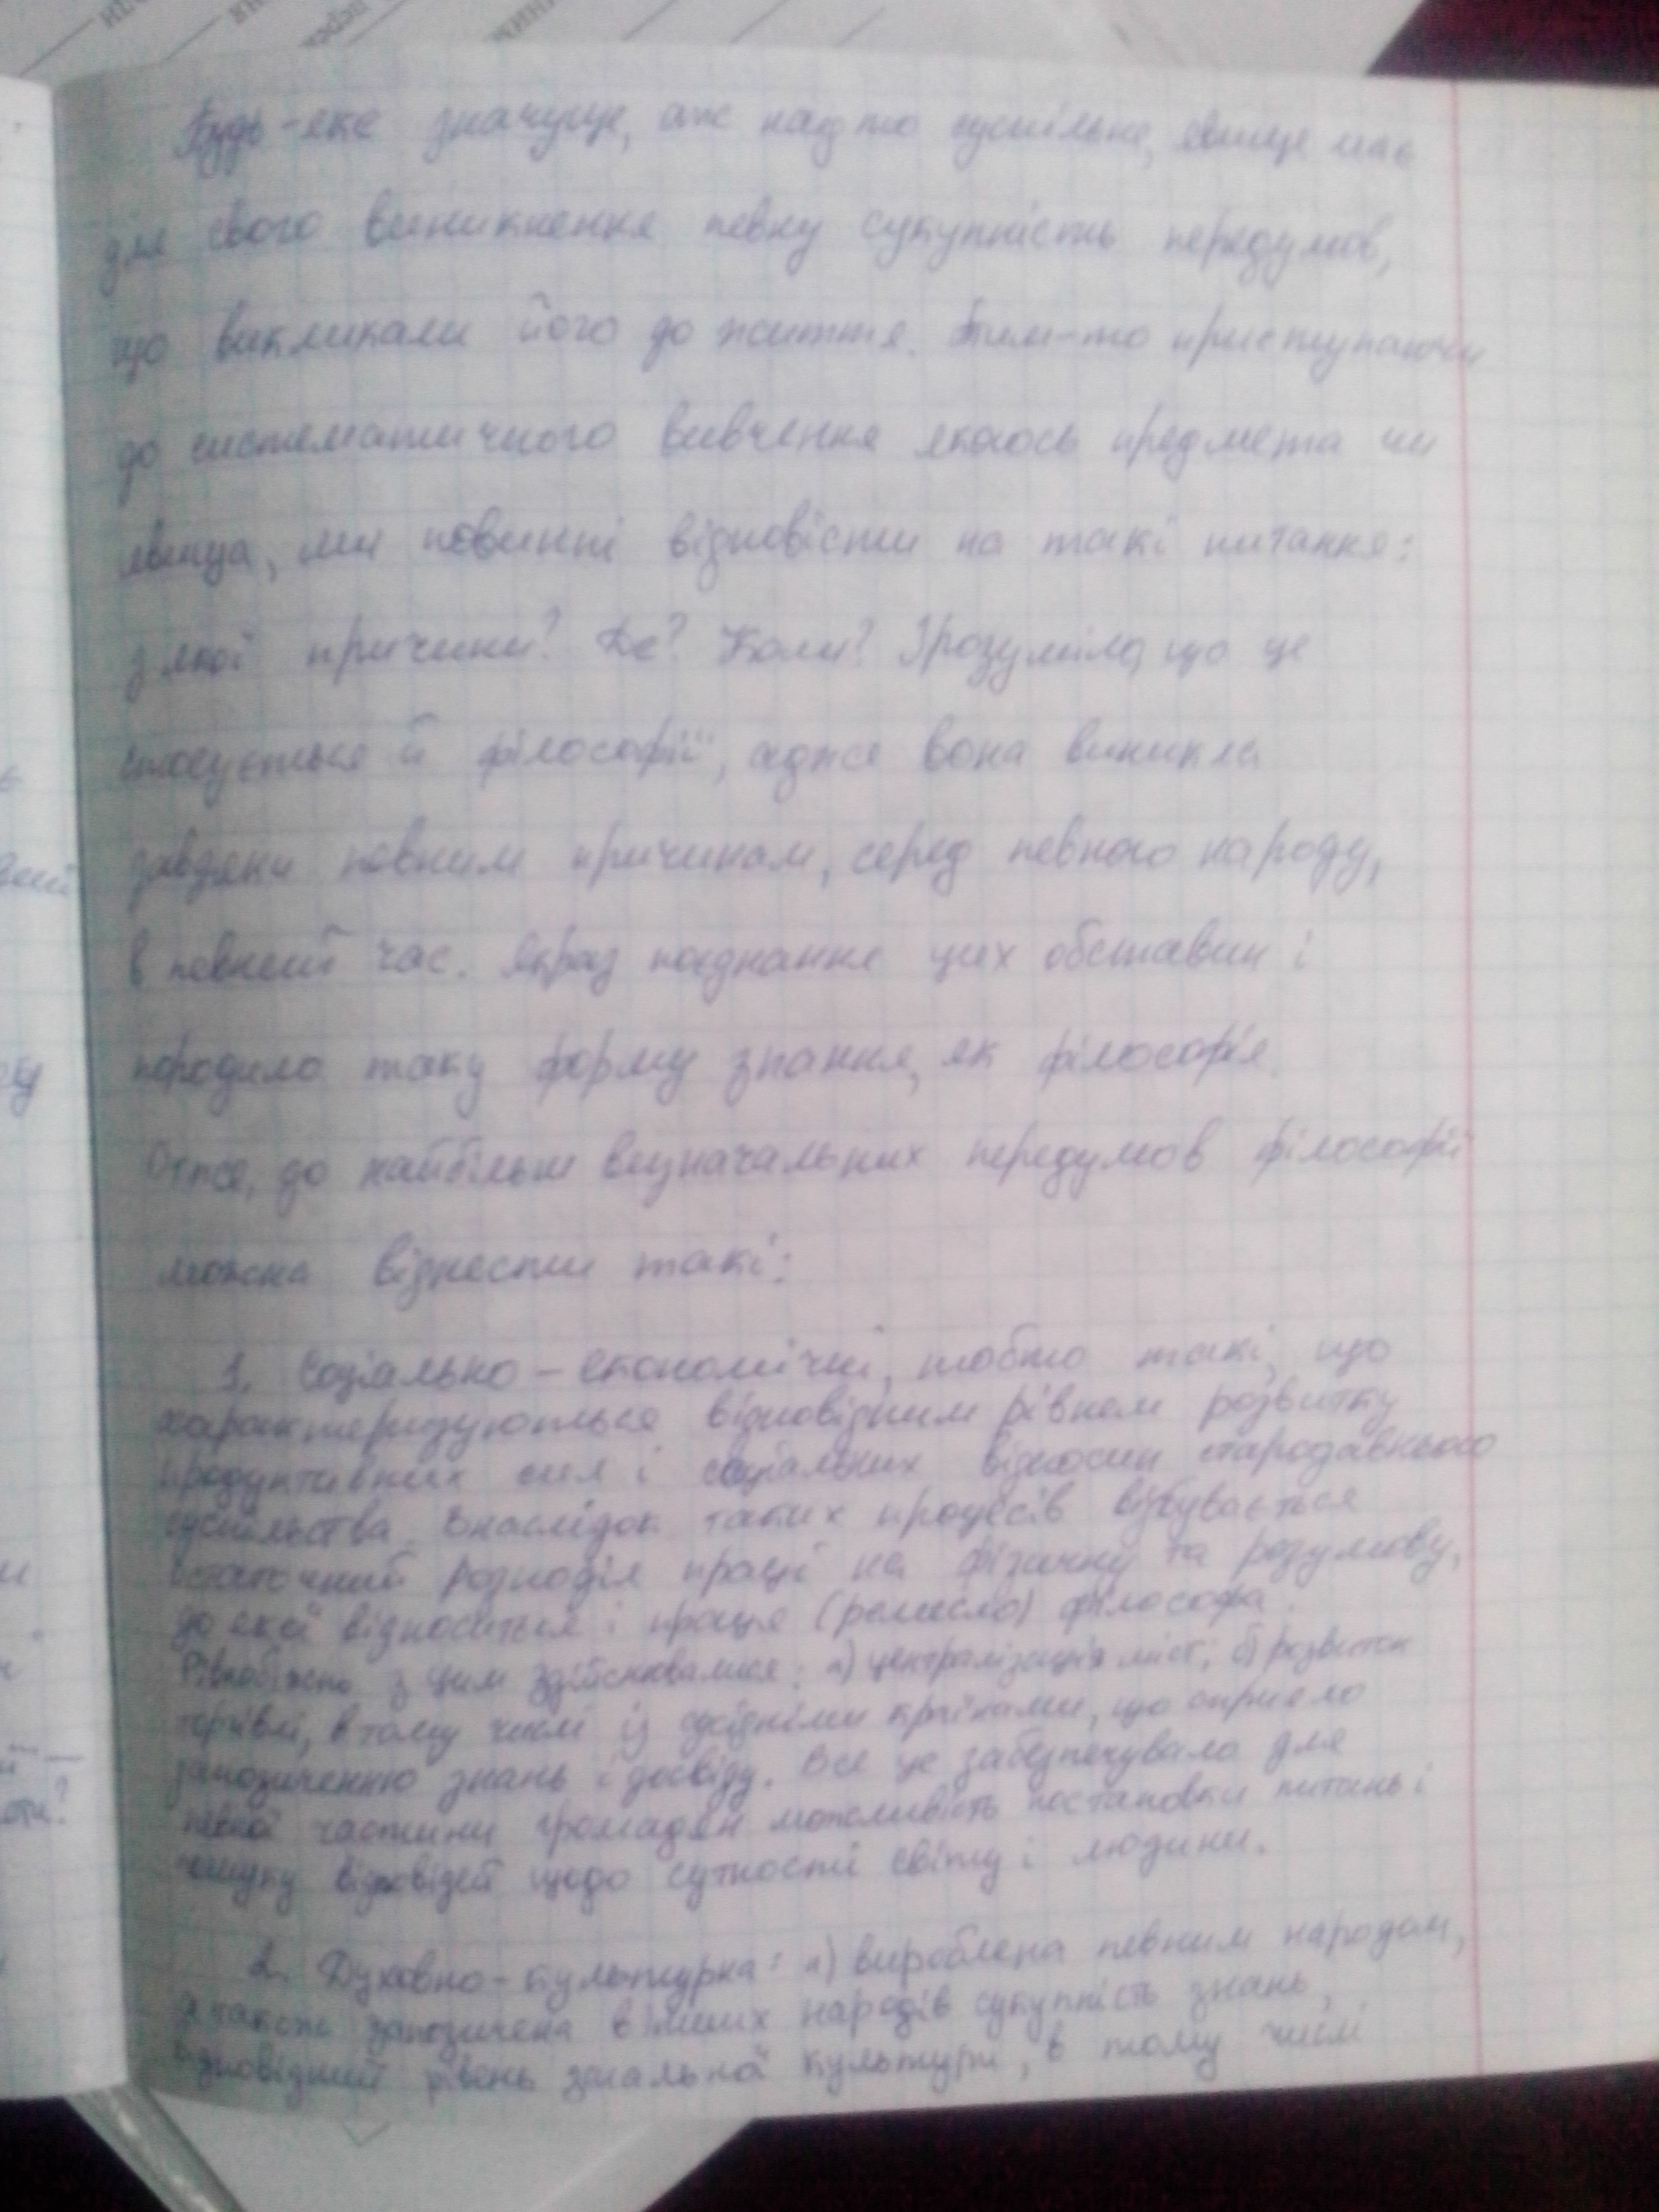 Будь-яке значуще, аж надто суспільне, явище має
для свого виникнення певну сукупність передумов,
що викликали його до життя. Тим-то приступаючи
до систематичного вивчення якогось предмета чи
явища, ми повинні відповісти на такі питання:
з якої причини? Де? Коли? Зрозуміло, що це
стосується й філософії, адже вона виникла
завдяки певним причинам, серед певного народу,
в певний час. Якраз поєднання цих обставин і
породило таку форму знання, як філософія.
Отже, до найбільш визначальних передумов філософії
можна віднести такі:
1. Соціально-економічні, тобто такі, що
характеризуються відповідним рівнем розвитку
продуктивних сил і соціальних відносин стародавнього
суспільства. Внаслідок таких процесів відбувається
остаточний розподіл праці на фізичну та розумову,
до якої відноситься і праця (ремесло) філософа.
Рівнобіжно з цим здійснювалися: а) централізація міст; б) розвиток
торгівлі, в тому числі із сусідніми країнами, що сприяло
запозиченню знань і досвіду. Все це забезпечувало для
певної частини громадян можливість постановки питань і
пошуку відповідей щодо сутності світу і людини.
2. Духовно-культурна: а) вироблена певним народом,
а також запозичена в інших народів сукупність знань,
відповідний рівень загальної культури, в тому числі